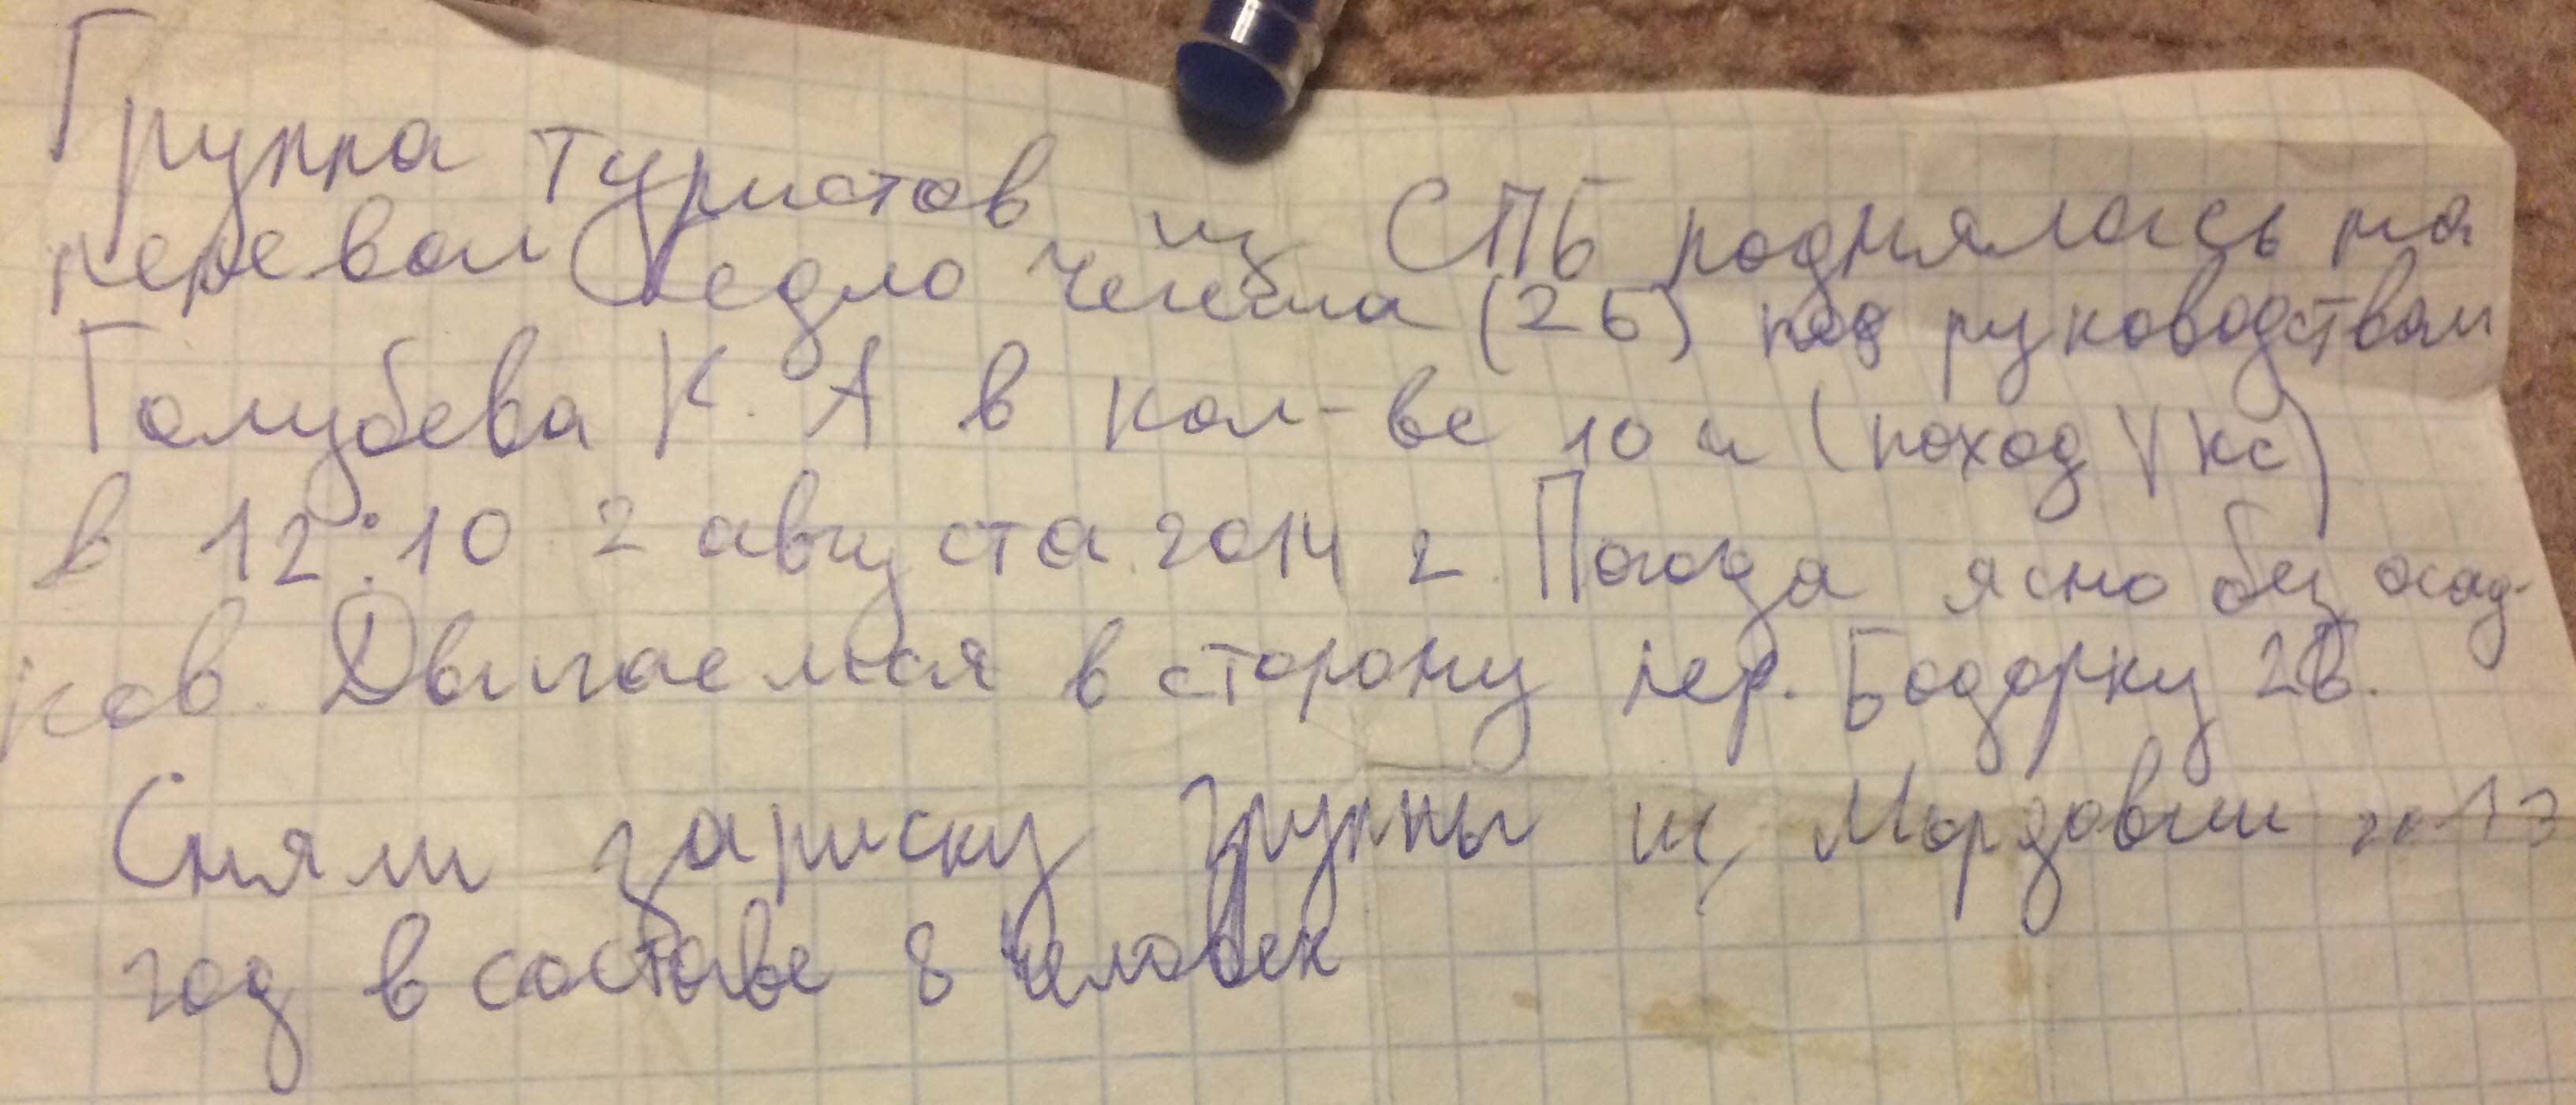 Группа туристов из СПБ поднялась на
перевал Седло Чегема (2Б) под руководством
Голубева К. А в кол-ве 10 ч (поход V кс)
в 12:10 2 августа 2014 г. Погода ясно без осад-
ков. Двигаемся в сторону пер. Бодорку 2Б.
Сняли записку группы из Мордовии за 13
год в составе 8 человек